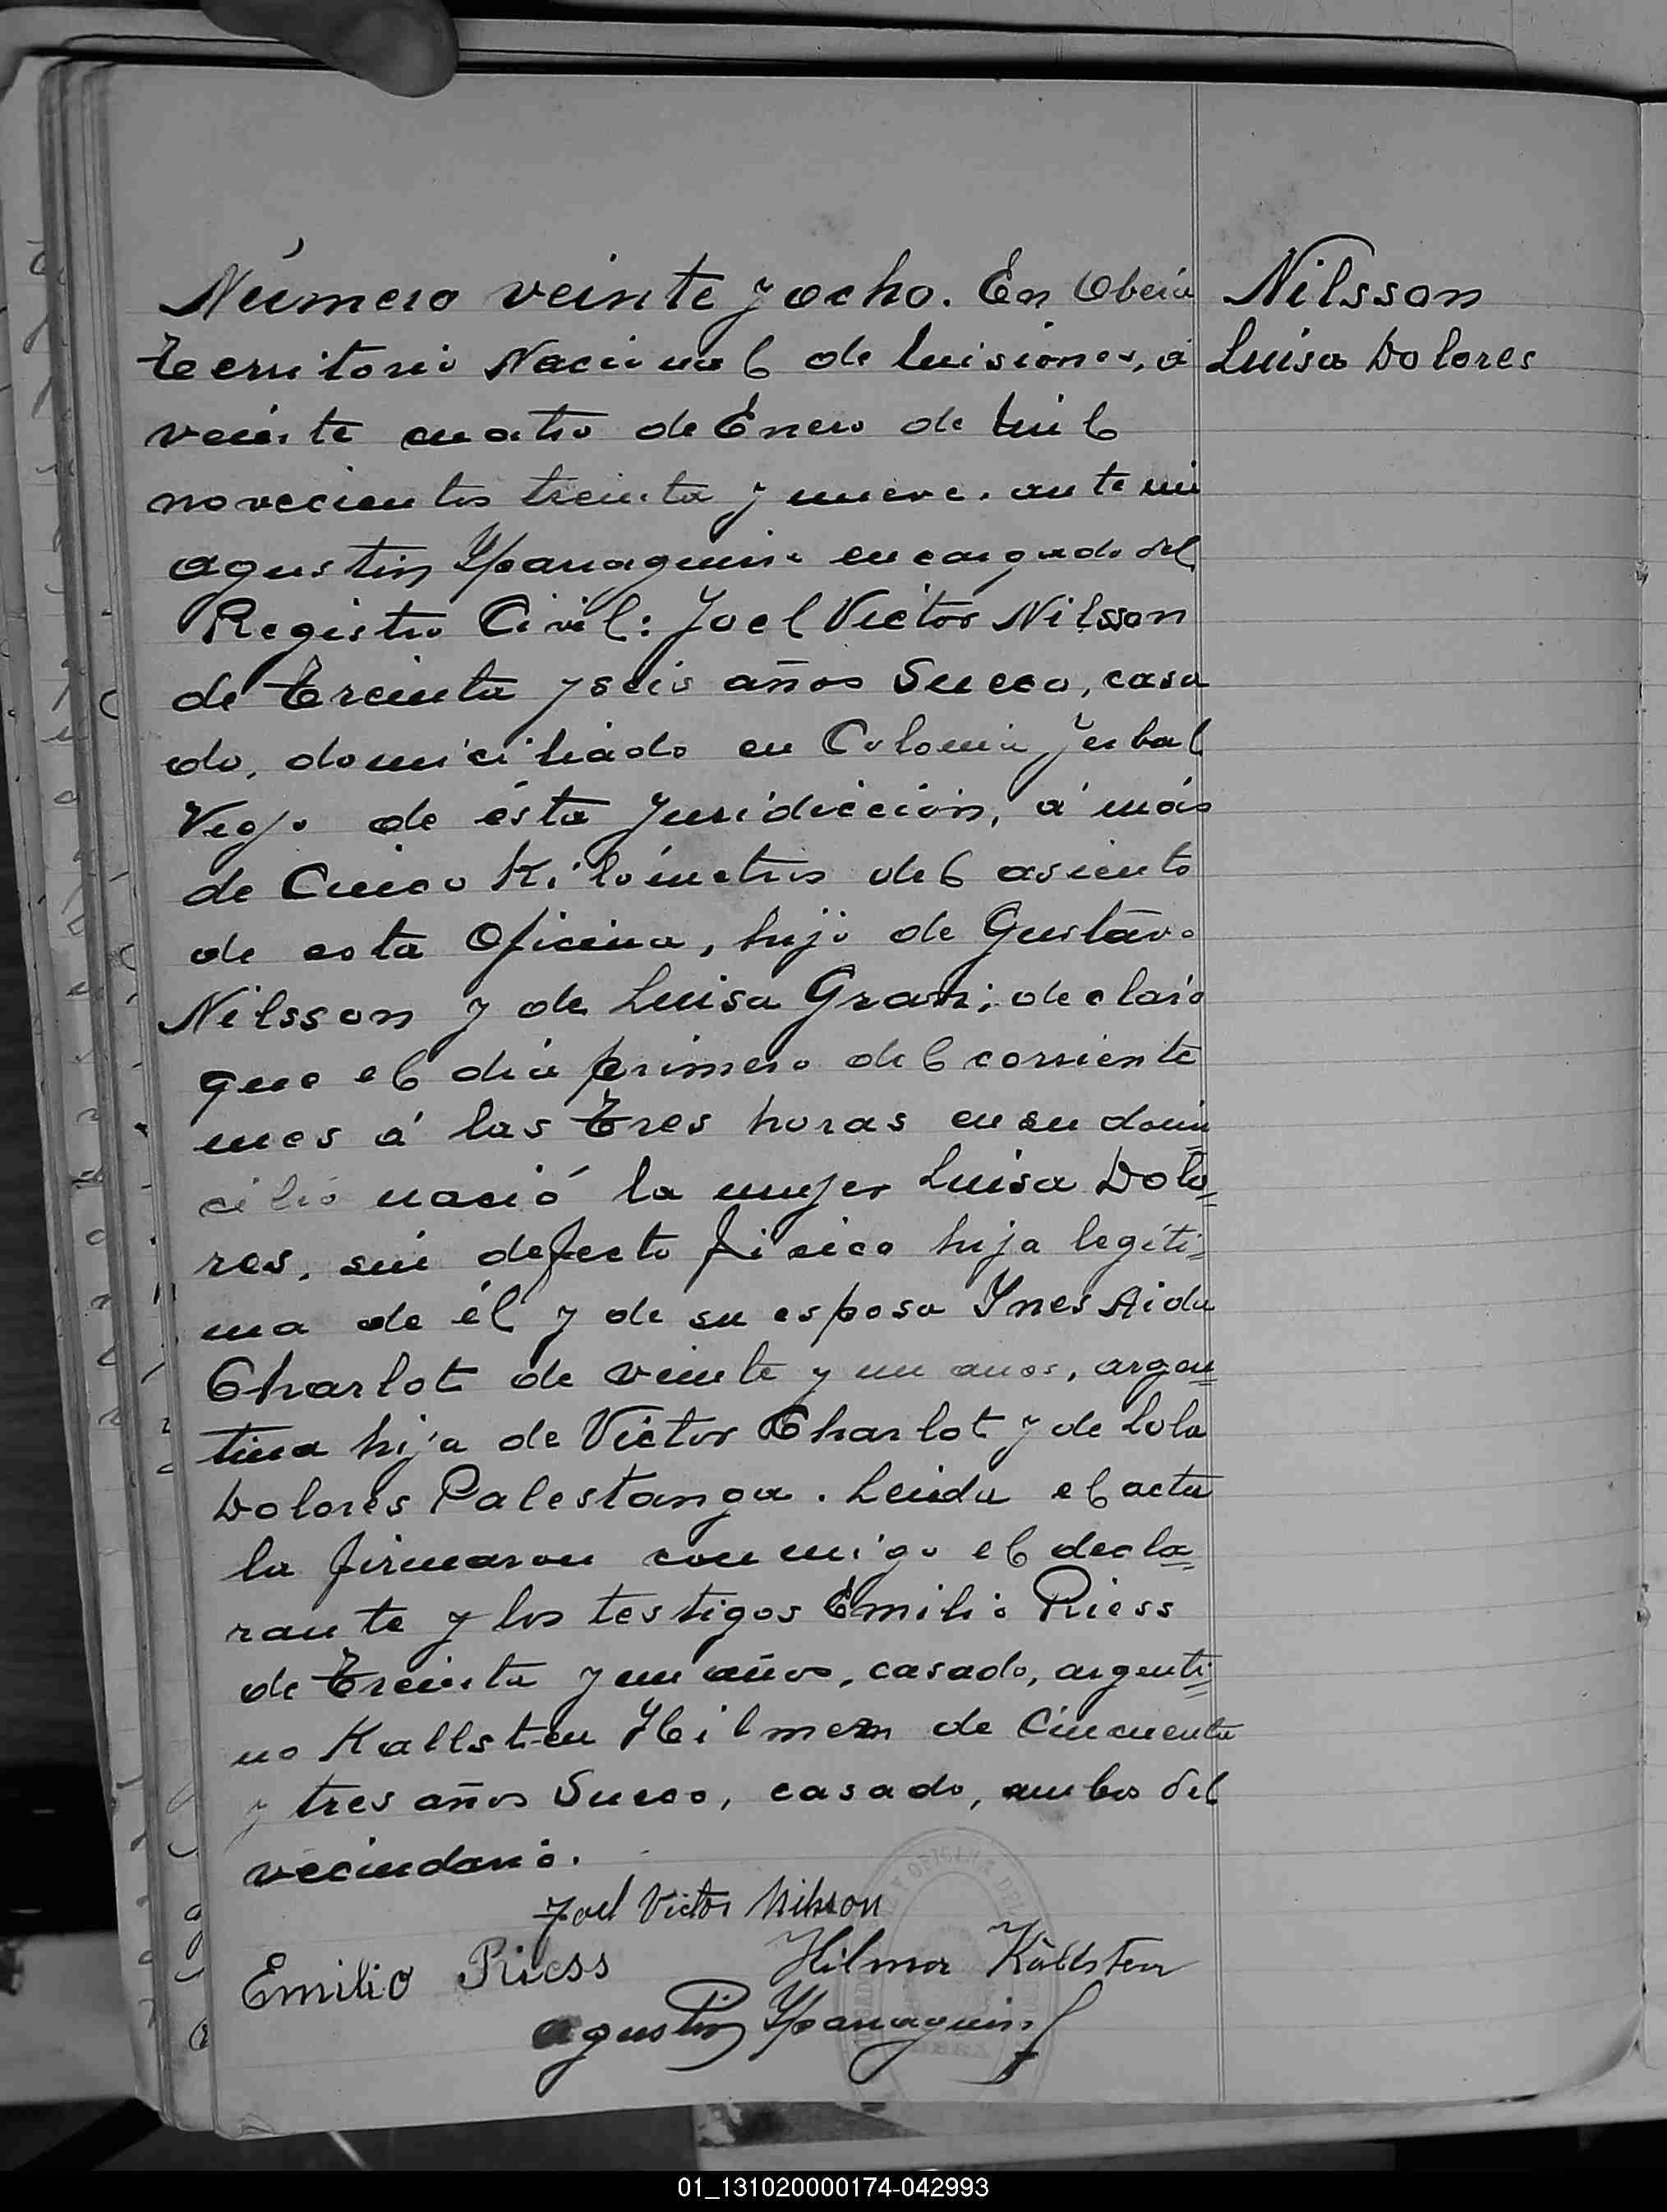 Número veinte y ocho. En Oberá
Nilsson
Luisa Dolores
Territorio Nacional de Misiones, á
veinte cuatro de Enero de mil
novecientos treinta y nueve. ante mi
Agustin Yparaguirre encargado del
Registro Civil: Joel Victor Nilsson
de Treinta y seis años Sueco, casa
do, domiciliado en Colonia Yerbal
Viejo de ésta Juridicción, á más
de Cinco Kilómetros del asiento
de esta Oficina, hijo de Gustavo
Nilsson y de Luisa Gran; declaró
que el día primero del corriente
mes á las Tres horas en su domi
cilio nació la mujer Luisa Dolo=
res, sin defecto fisico hija legíti=
ma de él y de su esposa Ynes Aida
Charlot de veinte y un anos, argen=
tina hija de Victor Charlot y de Lola
Dolores Palestanga. Leida el acta
la firmaron conmigo el decla=
rante y los testigos Emilio Riess
de Treinta y un años, casado, argenti=
no Kallsten Hilmer de Cincuenta
y tres años Sueco, casado, ambos del
vecindario.
Joel Victor Nilsson
Emilio Riess Hilmer Källsten
Agustin Yparaguirre
01_131020000174-042993